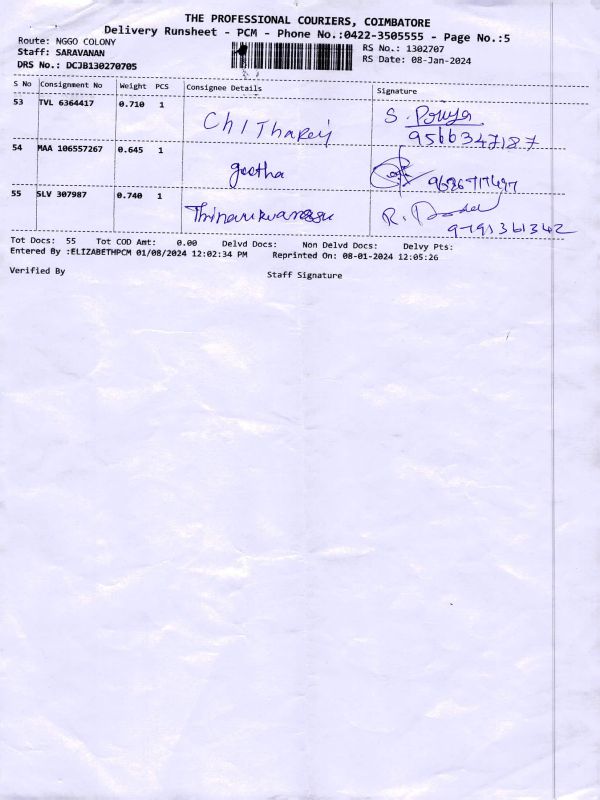 THE PROFESSIONAL COURIERS, COIMBATORE
Delivery Runsheet - PCM - Phone No.:0422-3505555 - Page No.:5
Route: NGGO COLONY
RS No.: 1302707
Staff: SARAVANAN
RS Date: 08-Jan-2024
DRS No.: DCJB130270705
S No Consignment No Weight PCS Consignee Details Signature
53 TVL 6364417 0.710 1
S. 9566347187
54 MAA 106557267 0.645 1 geetha
55 SLV 307987 0.740 1
R.
9791361342
Tot Docs: 55 Tot COD Amt: 0.00 Delvd Docs: Non Delvd Docs: Delvy Pts:
Entered By :ELIZABETHPCM 01/08/2024 12:02:34 PM Reprinted On: 08-01-2024 12:05:26
Verified By Staff Signature